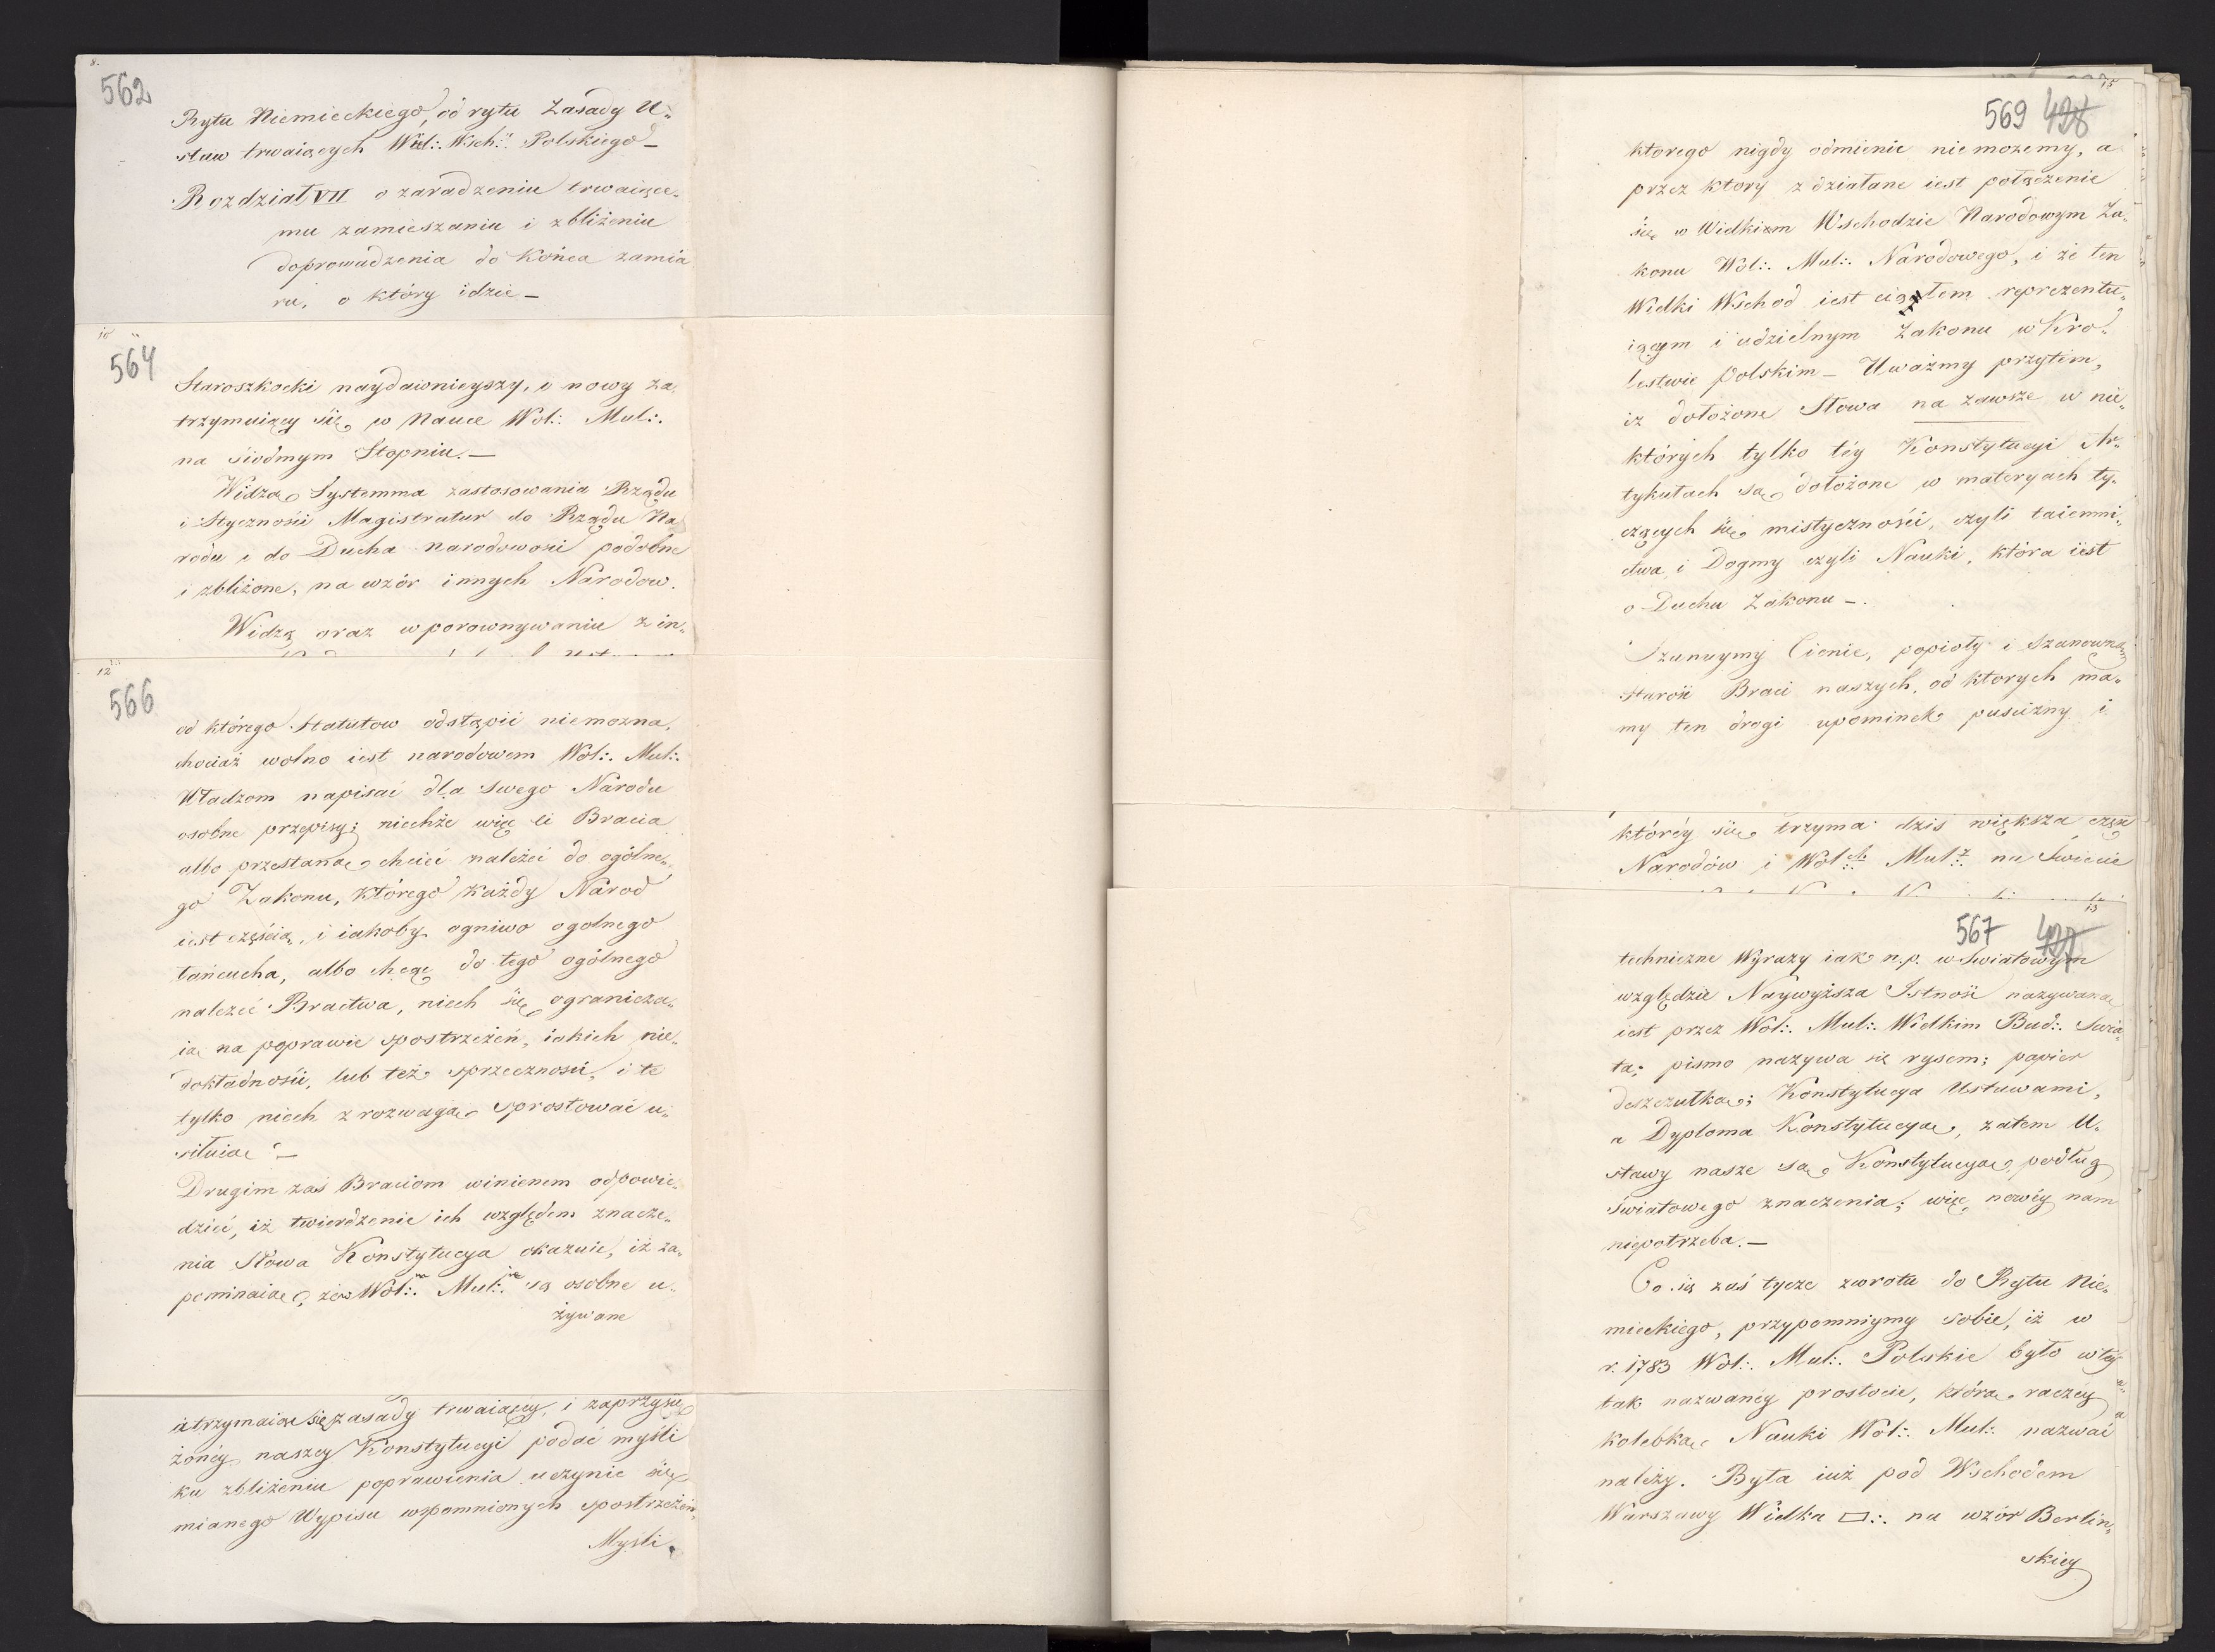 8.
562
Rytu Niemieckiego, od rytu Zasady U„
staw trwaiących Wiel:. Wsch:. Polskiego —
Rozdział VII o zaradzeniu trwaiące„
mu zamieszaniu i zbliżeniu
doprowadzenia do Końca zamia
ru, o który idzie —
10
564
Staroszkocki naydawnieyszy, o nowy za„
trzymuiący się w Nauce Wol:. Mul:.
na siodmym Stopniu. —
Widzą Systemma zastosowania Rządu
i Styczności Magistratur do Rządu Na
rodu i do Ducha narodowości podobne
i zbliżone, na wzór innych Narodow.
Widzą oraz w porownywaniu z in„
12
566
od którego Statutow odstąpić niemożna,
chociaż wolno iest narodowem Wol:. Mul:.
Władzom napisać dla swego Narodu
osobne przepisy; niechże więc ci Bracia
albo przestaną chcieć należeć do ogólne„
go Zakonu, którego każdy Narod
iest częścią, i iakoby ogniwo ogolnego
łańcucha, albo chcąc do tego ogólnego
należeć Bractwa, niech się ogranicza„
ią na poprawie spostrzeżeń, iakich nie„
dokładności, lub też sprzeczności, i te
tylko niech z rozwagą sprostować u„
siłuią. —
Drugim zaś Braciom winienem odpowie„
dzieć, iż twierdzenie ich względem znacze„
nia Słowa Konstytucya okazuie, iż za„
pominaią, że w Wol:. Mul:. są osobne u„
żywane
a trzymaiąc się zasady trwaiącey, i zaprzysię
żonéy naszey Konstytucyi podać myśli
ku zbliżeniu poprawienia uczynić się
mianego Wypisu wspomnionych spostrzeżeń.
Myśli
15
569 428
ktorego nigdy odmienić niemożemy, a
przez ktory zdziałane iest połączenie
się w Wielkiem Wschodzie Narodowym Za„
konu Wol:. Mul:. Narodowego, i że ten
Wielki Wschod iest ciałem reprezentu„
iącym i udzielnym Zakonu w Kro„
lestwie Polskim — Uważmy przytém,
iż dołożone Słowa na zawsze w nie„
których tylko téy Konstytucyi Ar„
tykułach są dołożone w materyach ty„
czących się mistyczności, czyli taiemni„
ctwa, i Dogmy czyli Nauki, która iest
o Duchu Zakonu —.
Szanuymy Cienie, popioły i Szanowną
starość Braci naszych, od ktorych ma„
my ten drogi upominek puścizny i
któréy się trzyma dziś większa część
Narodów i Wol:. Mul:. na Świecie
13
567 427
techniczne Wyrazy iak n.p. w Swiatowym
względzie Naywyższa Istność nazywana
iest przez Wol:. Mul:. Wielkim Bud:. Świa„
ta; pismo nazywa się rysem; papier
deszczułką; Konstytucya Ustawami,
a Dyploma Konstytucyą, zatem U„
stawy nasze są Konstytucyą podług
światowego znaczenia; więc nowéy nam
niepotrzeba. —
Co się zaś tycze zwrotu do Rytu Nie„
mieckiego, przypomniymy sobie, iż w
r. 1783 Wol:. Mul:. Polskie było w téy
tak nazwaney prostocie, którą raczéy
kolebką Nauki Wol:. Mul:. nazwać
należy. Była iuż pod Wschodem
Warszawy Wielka ▭:. na wzór Berlin„
skiey